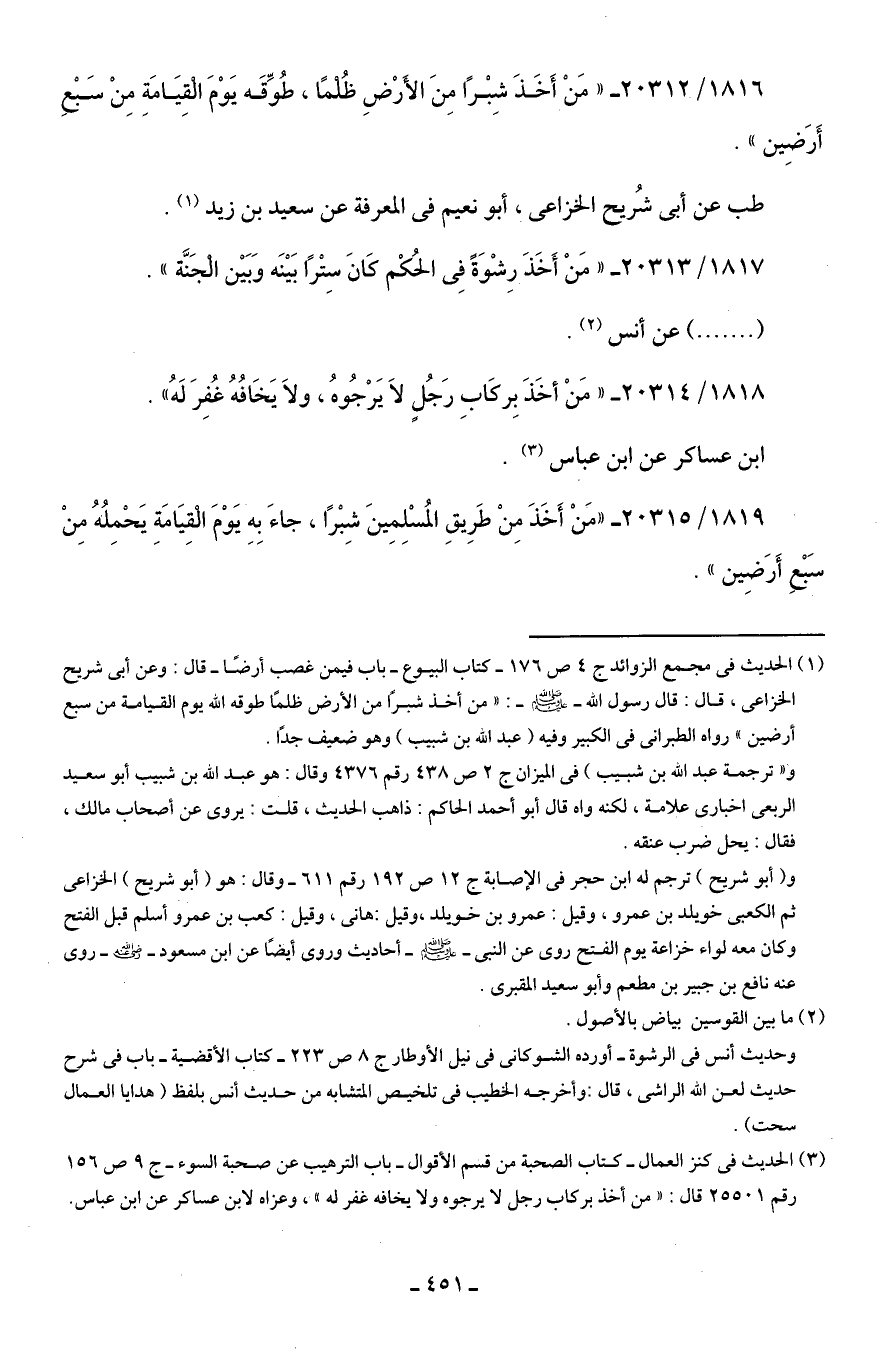 ١٨١٦/ ٢٠٣١٢ـ « مَنْ أَخَـذَ شِبْـرًا مِنَ الأَرْضِ ظُلْمًا ، طُوِّقَـه يَوْمَ الْقِيَـامَةِ مِنْ سَـبْعِ
أَرَضِين » .
طب عن أبى شُريح الخزاعى ، أبو نعيم فى المعرفة عن سعيد بن زيد (١) .
١٨١٧/ ٢٠٣١٣ـ « مَنْ أَخَذَ رِشْوَةً فِى الحُكْم كَانَ سِتْرًا بَيْنَه وَبَيْن الْجَنَّة » .
(.......) عن أنس (٢) .
١٨١٨/ ٢٠٣١٤ـ « مَنْ أخَذَ بِركَابِ رَجُلٍ لاَ يَرْجُوهُ ، ولاَ يَخَافُهُ غُفِرَ لَهُ» .
ابن عساكر عن ابن عباس (٣) .
١٨١٩/ ٢٠٣١٥ـ «مَنْ أَخَذَ مِنْ طَرِيقِ المُسْلِمِينَ شِبْرًا ، جاءَ بِهِ يَوْمَ الْقِيَامَةِ يَحْمِلُهُ مِنْ
سَبْعِ أَرَضِين » .
(١) الحديث فى مجـمع الزوائد ج ٤ ص ١٧٦ ـ كتاب البيـوع ـ باب فيمن غصب أرضًـا ـ قال : وعن أبى شريح
الخزاعى ، قـال : قال رسول الله ـ ﷺ ـ : « من أخـذ شبـرًا من الأرض ظلمًا طوقه الله يوم القـيامـة من سبع
أرضين » رواه الطبرانى فى الكبير وفيه ( عبد الله بن شبيب ) وهو ضعيف جدًا .
و« ترجمـة عبد الله بن شبـيب ) فى الميزان ج ٢ ص ٤٣٨ رقم ٤٣٧٦ وقال : هو عبـد الله بن شبيب أبو سعيد
الربعى اخبارى علامـة ، لكنه واه قال أبو أحمد الحاكم : ذاهب الحديث ، قلـت : يروى عن أصحاب مالك ،
فقال : يحل ضرب عنقه .
و( أبو شريح ) ترجم له ابن حجر فى الإصـابة ج ١٢ ص ١٩٢ رقم ٦١١ ـ وقال : هو ( أبو شريح ) الخزاعى
ثم الكعبى خويلد بن عمرو ، وقيل : عمرو بن خـويلد ،وقيل :هانى ، وقيل : كعب بن عمرو أسلم قبل الفتح
وكان معه لواء خزاعة يوم الفـتح روى عن النبى ـ ﷺ ـ أحاديث وروى أيضًا عن ابن مسعود ـ رضي الله عنه ـ روى
عنه نافع بن جبير بن مطعم وأبو سعيد المقبرى .
(٢) ما بين القوسين بياض بالأصول .
وحديث أنس فى الرشوة ـ أورده الشـوكانى فى نيل الأوطار ج ٨ ص ٢٢٣ ـ كتاب الأقضـية ـ باب فى شرح
حديث لعـن الله الراشى ، قال :وأخرجـه الخطيب فى تلخيـص المتشابه من حـديث أنس بلفظ ( هدايا العـمال
سحت) .
(٣) الحديث فى كنز العمال ـ كـتاب الصحبة من قسم الأقوال ـ باب الترهيب عن صـحبة السوء ـ ج ٩ ص ١٥٦
رقم ٢٥٥٠١ قال : « من أخذ بركاب رجل لا يرجوه ولا يخافه غفر له » ، وعزاه لابن عساكر عن ابن عباس.
ـ ٤٥١ ـ